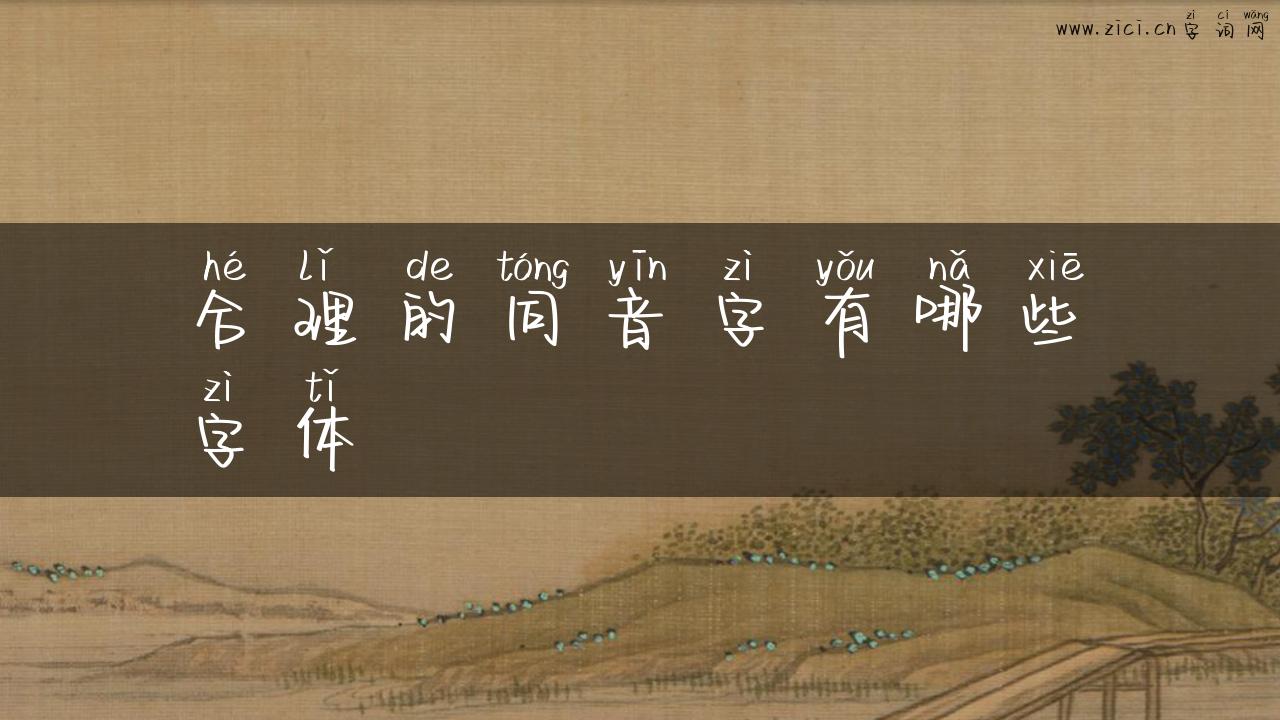 zì cí wǎng
www.zici.cn 字 词 网
hé lǐ de tóng yīn zì yǒu nǎ xiē
合 理 的 同 音 字 有 哪 些
zì tǐ
字 体